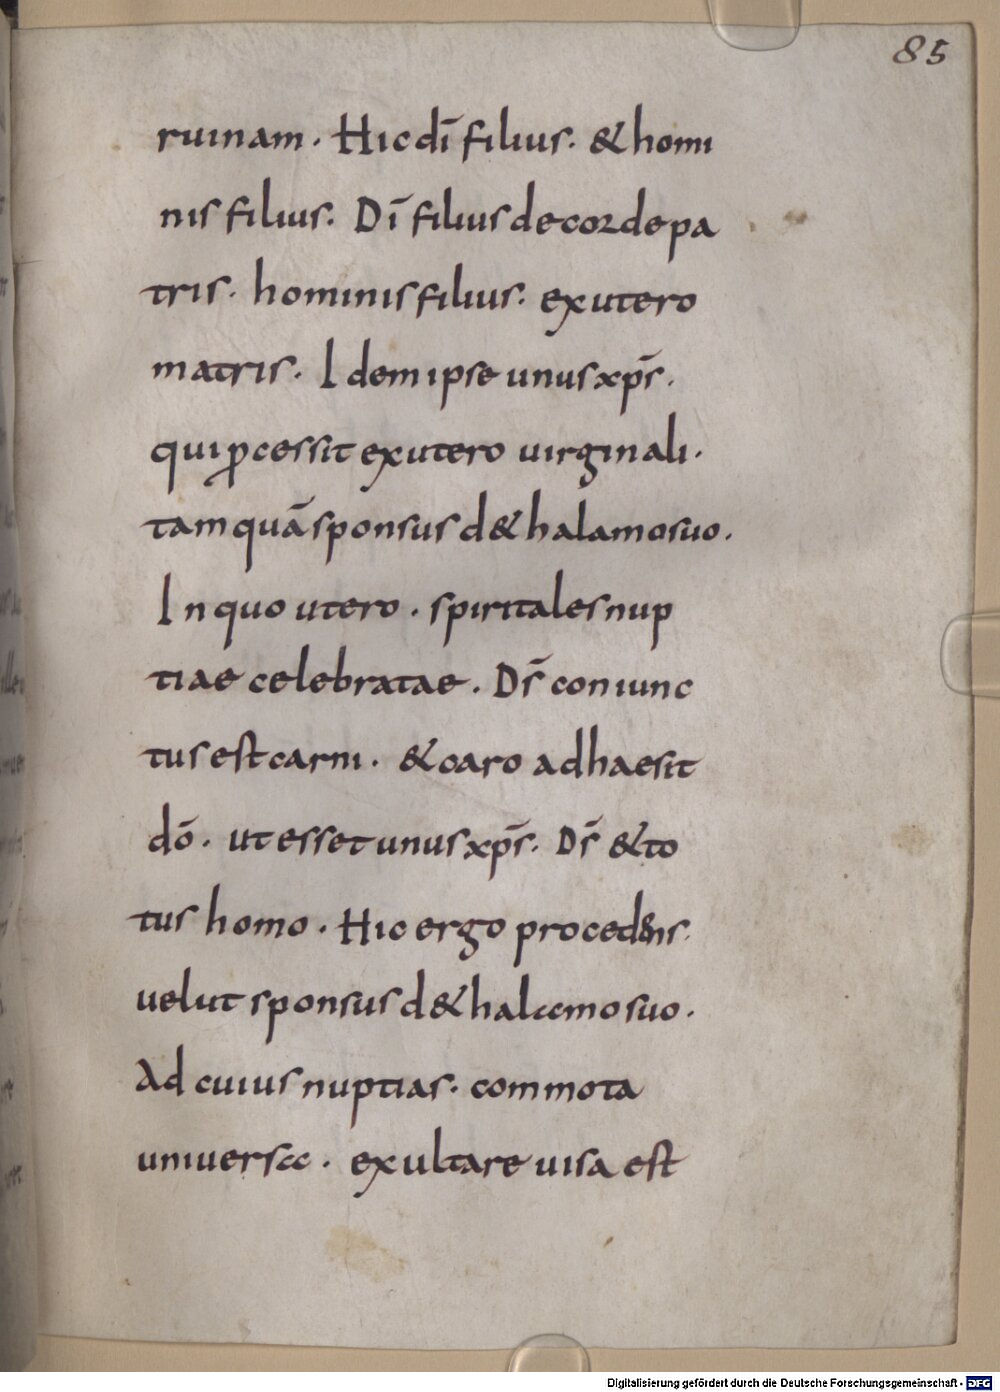 85
ruinam · Hic dī filius · & homi
nis filius : Dī filius de corde pa
tris · hominis filius : ex utero
matris · Idem ipse unus xp̄s ·
qui ꝓcessit ex utero uirginali ·
tamquā sponsus d& halamo suo ·
In quo utero · spiritales nup
tiae celebratae · Ds̄ coniunc
tus est carni · & caro adhaesit
dō · ut esset unus xp̄s · Ds̄ & to
tus homo · Hic ergo procedens
uelut sponsus d& halamo suo ·
Ad cuius nuptias · commota
uniuersa · exultare uisa est
Digitalisierung gefördert durch die Deutsche Forschungsgemeinschaft - DFG